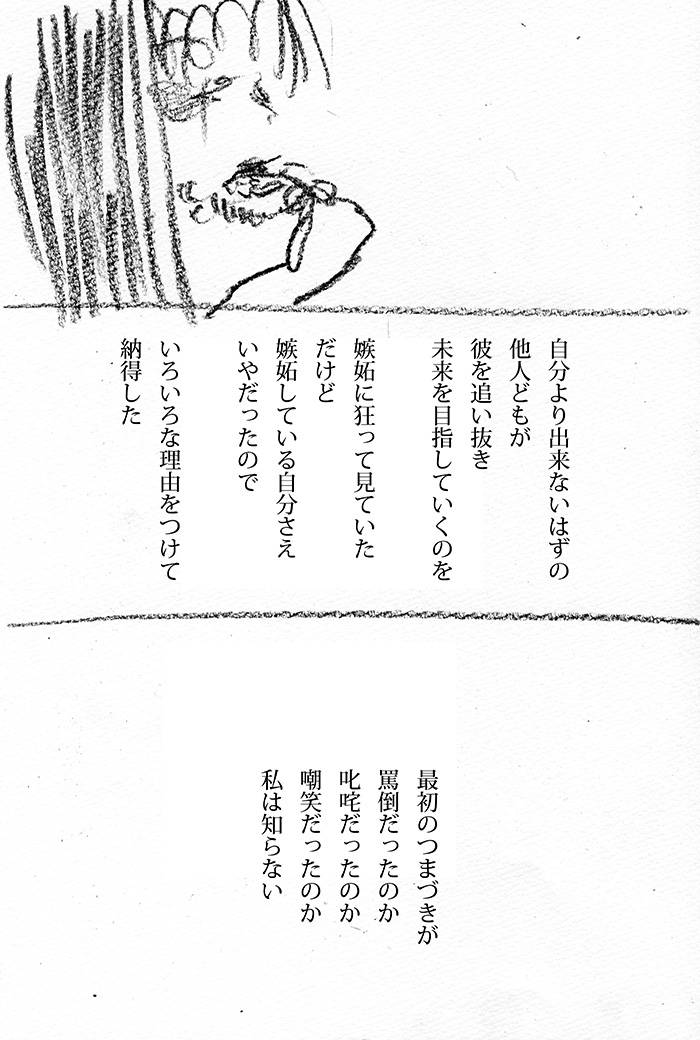 自分より出来ないはずの
他人どもが
彼を追い抜き
未来を目指していくのを
嫉妬に狂って見ていた
だけど
嫉妬している自分さえ
いやだったので
いろいろな理由をつけて
納得した
最初のつまづきが
罵倒だったのか
叱咤だったのか
嘲笑だったのか
私は知らない